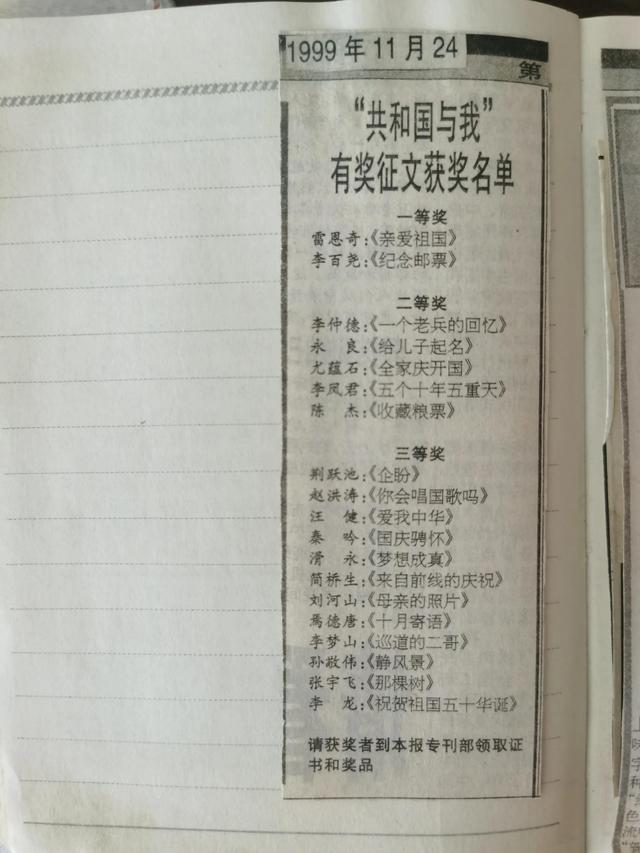 1999年11月24
第
“共和国与我”
有奖征文获奖名单
一等奖
雷恩奇:《亲爱祖国》
李百尧:《纪念邮票》
二等奖
李仲德:《一个老兵的回忆》
永 良:《给儿子起名》
尤蕴石:《全家庆开国》
李凤君:《五个十年五重天》
陈 杰:《收藏粮票》
三等奖
荆跃池:《企盼》
赵洪涛:《你会唱国歌吗》
汪 健:《爱我中华》
秦 吟:《国庆骋怀》
滑 永:《梦想成真》
简桥生:《来自前线的庆祝》
刘河山:《母亲的照片》
焉德唐:《十月寄语》
李梦山:《巡道的二哥》
孙敬伟:《静风景》
张宇飞:《那棵树》
李 龙:《祝贺祖国五十华诞》
请获奖者到本报专刊部领取证
书和奖品